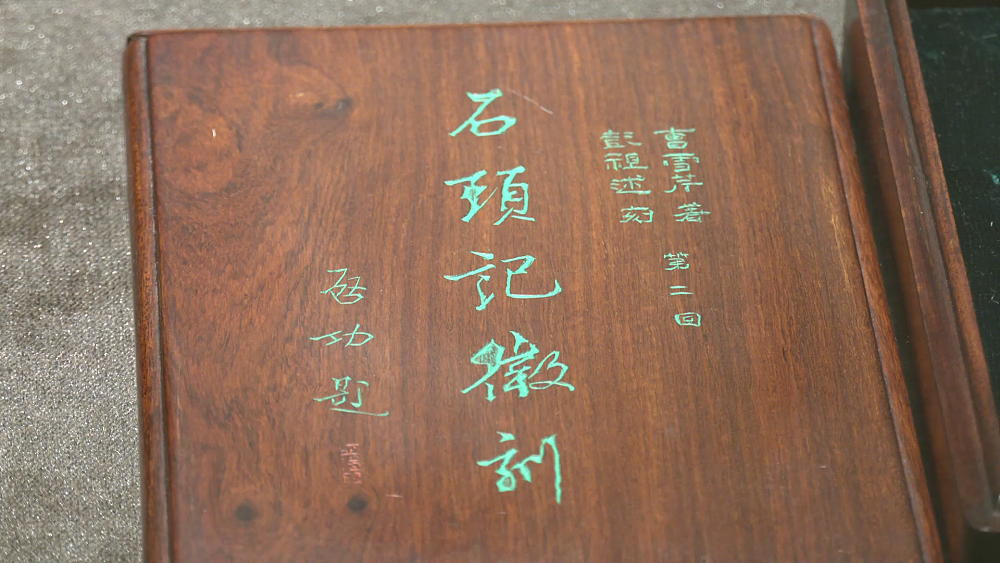 曹雪芹著 第二回
彭祖述刻
石頭記徽訓
啓功題